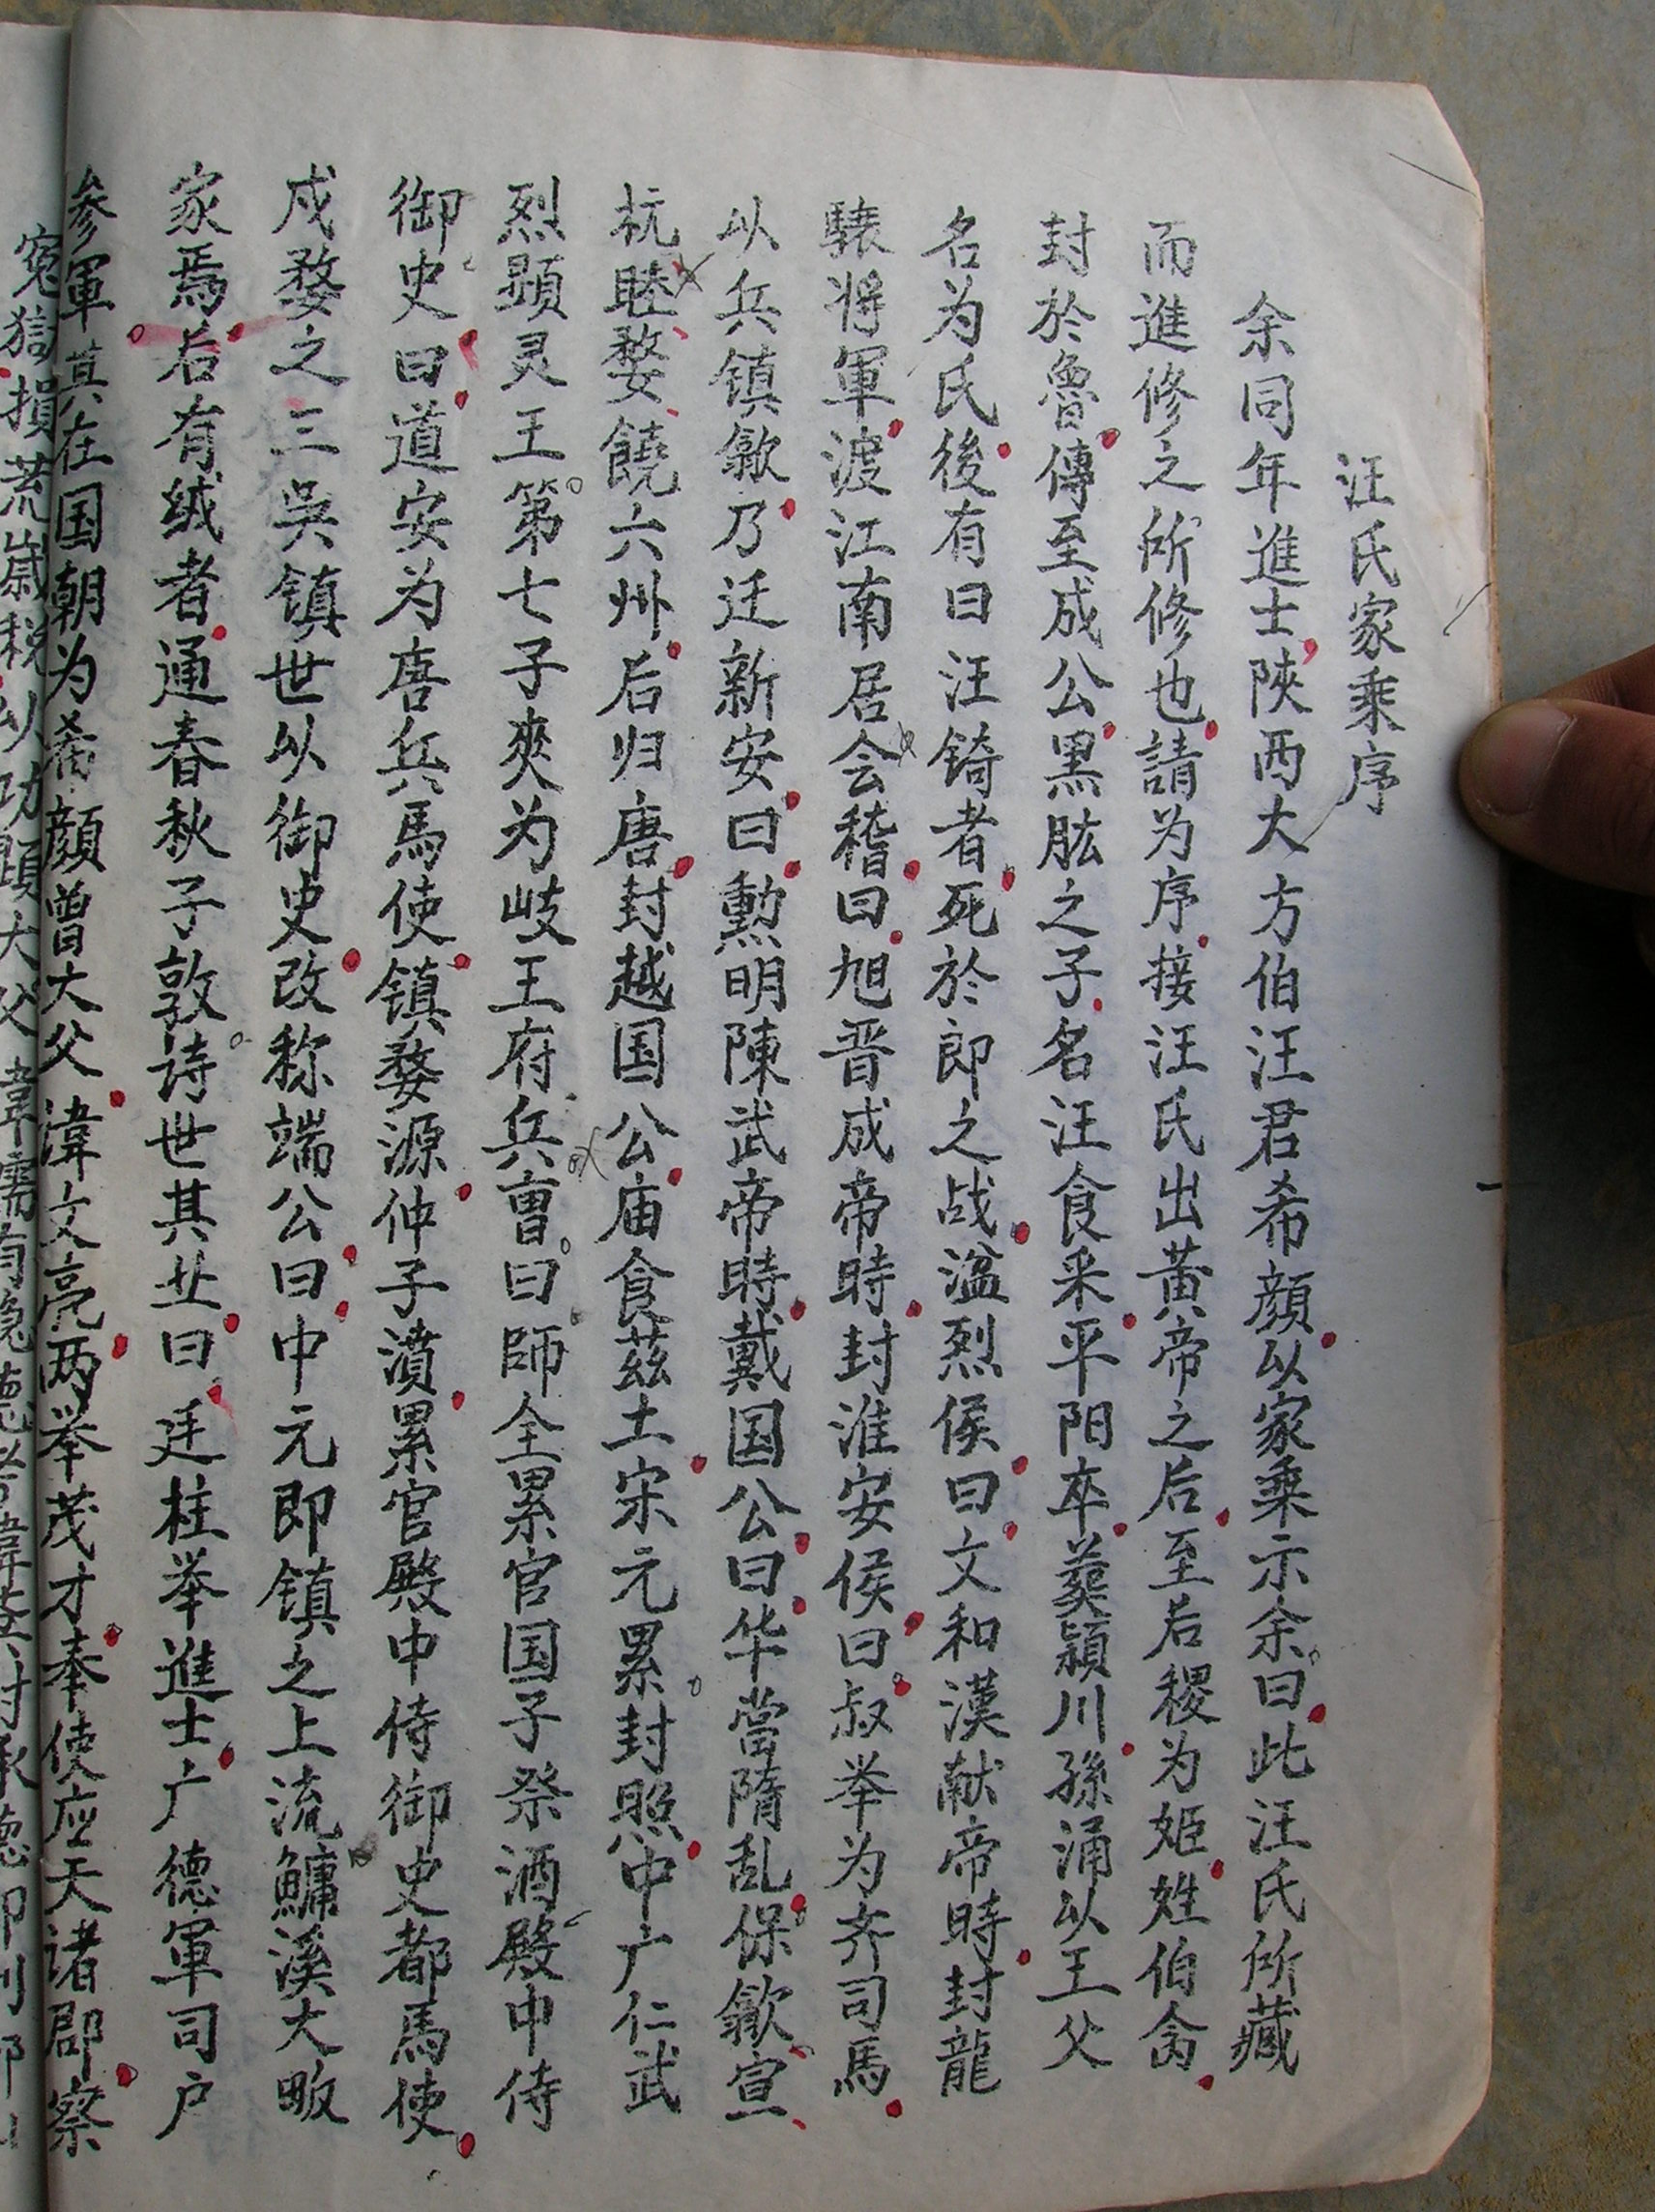 汪氏家乘序
余同年進士陝西大方伯汪君希顔以家乘示余曰此汪氏所藏
而進修之所修也請为序接汪氏出黃帝之后至后稷为姬姓伯禽
封於魯傳至成公黑肱之子名汪食采平阳卒葬潁川孫涌以王父
名为氏後有曰汪錡者死於郎之战溢烈侯曰文和漢献帝時封龍
驤将軍渡江南居会稽曰旭晋成帝時封淮安侯曰叔举为齐司馬
以兵镇歙乃迁新安曰勲明陳武帝時戴国公曰华當隋乱保歙宣
杭睦婺饒六州后归唐封越国公庙食茲土宋元累封照中广仁武
烈顕灵王第七子爽为岐王府兵曹曰師全累官国子祭酒殿中侍
御史曰道安为唐兵馬使镇婺源仲子濆累官殿中侍御史都馬使
戍婺之三吳镇世以御史改称端公曰中元即镇之上流鱅溪大畈
家焉后有绒者通春秋子敦诗世其业曰廷柱举進士广德軍司户
参軍其在国朝为希顔曾大父諱文亮两举茂才奉使应天诸郡察
冤獄損荒嵗税以功顕大父諱儒有隐德